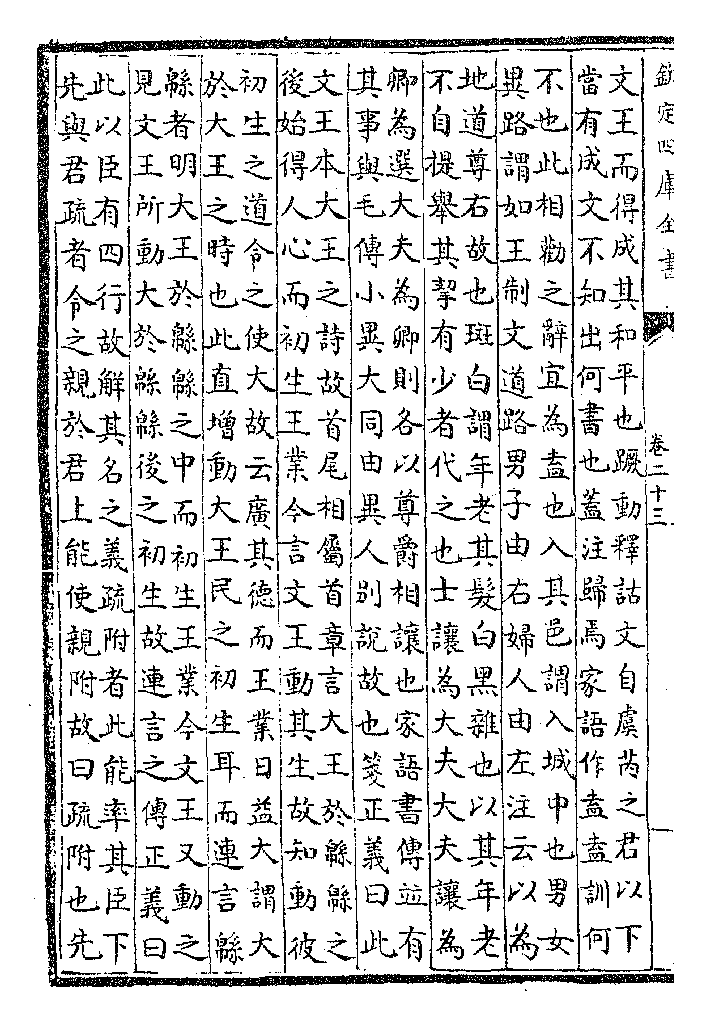 欽定四庫全書
卷二十三
文王而得成其和平也蹶動釋詁文自虞芮之君以下
當有成文不知出何書也蓋注歸焉家語作盍盍訓何
不也此相勸之辭宜為盍也入其邑謂入城中也男女
異路謂如王制文道路男子由右婦人由左注云以為
地道尊右故也斑白謂年老其髮白黑雜也以其年老
不自提舉其挈有少者代之也士讓為大夫大夫讓為
卿為選大夫為卿則各以尊爵相讓也家語書傳並有
其事與毛傳小異大同由異人別說故也箋正義曰此
文王本大王之詩故首尾相屬首章言大王於緜緜之
後始得人心而初生王業今言文王動其生故知動彼
初生之道令之使大故云廣其德而王業日益大謂大
於大王之時也此直增動大王民之初生耳而連言緜
緜者明大王於緜緜之中而初生王業今文王又動之
見文王所動大於緜緜後之初生故連言之傳正義曰
此以臣有四行故解其名之義疏附者此能率其臣下
先與君疏者令之親於君上能使親附故曰疏附也先